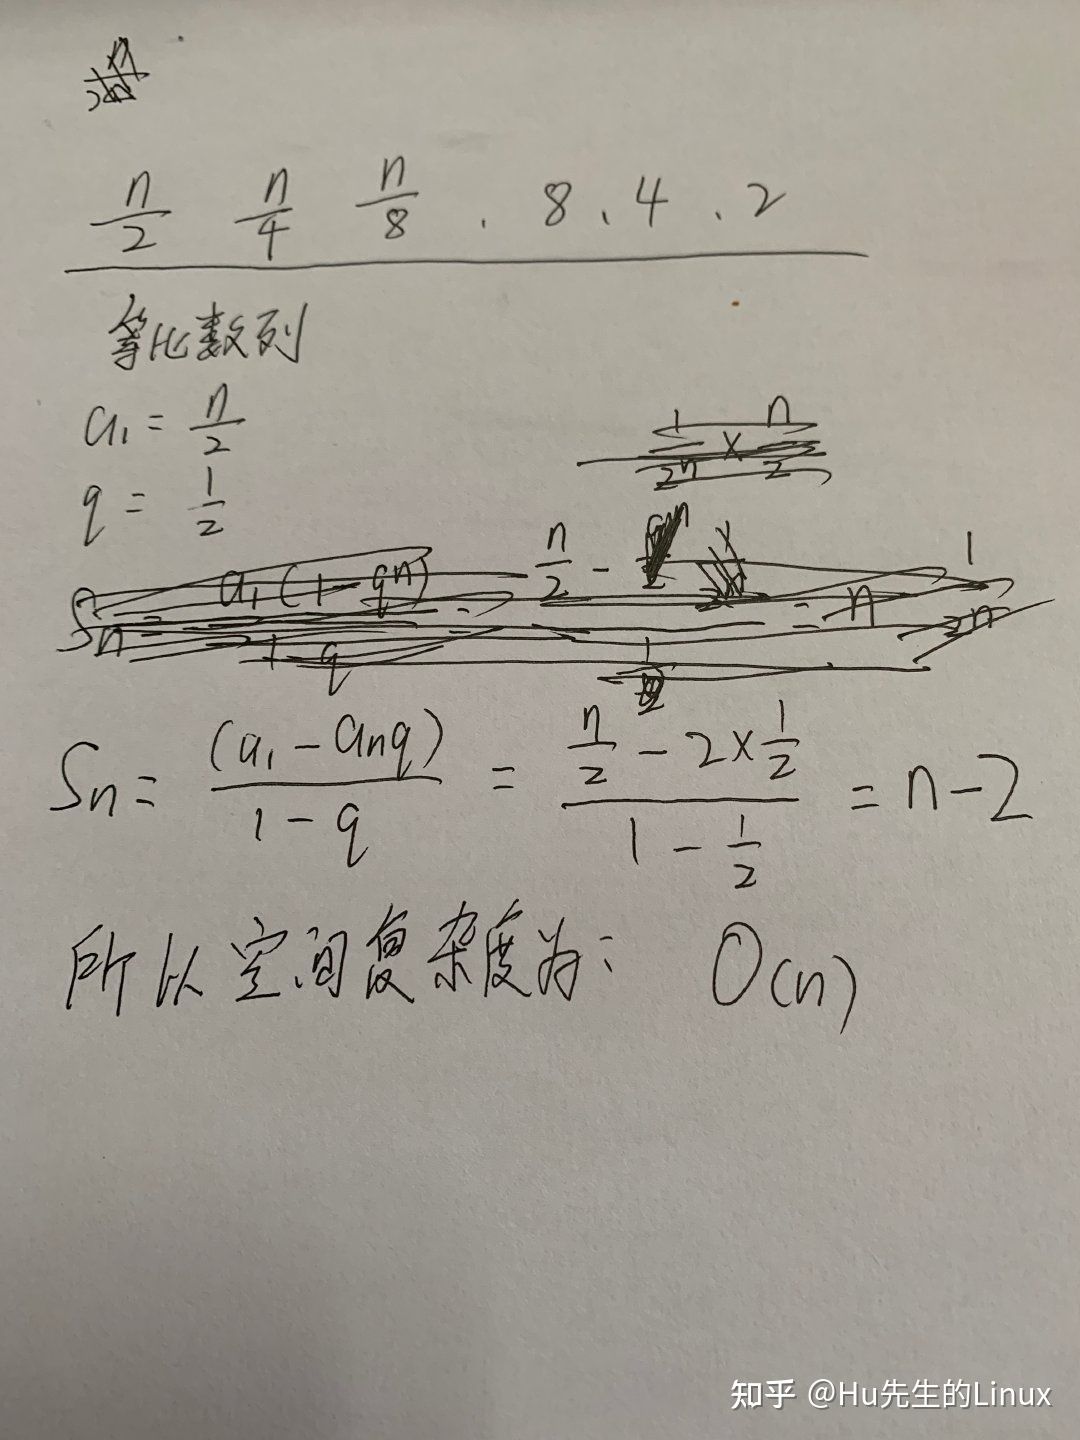 n/2 n/4 n/8 . 8 、 4 、 2
等比数列
a₁ = n/2
q = 1/2
Sₙ = (a₁ - aₙq) / (1 - q) = (n/2 - 2×1/2) / (1 - 1/2) = n-2
所以空间复杂度为: O(n)
知乎 @Hu先生的Linux